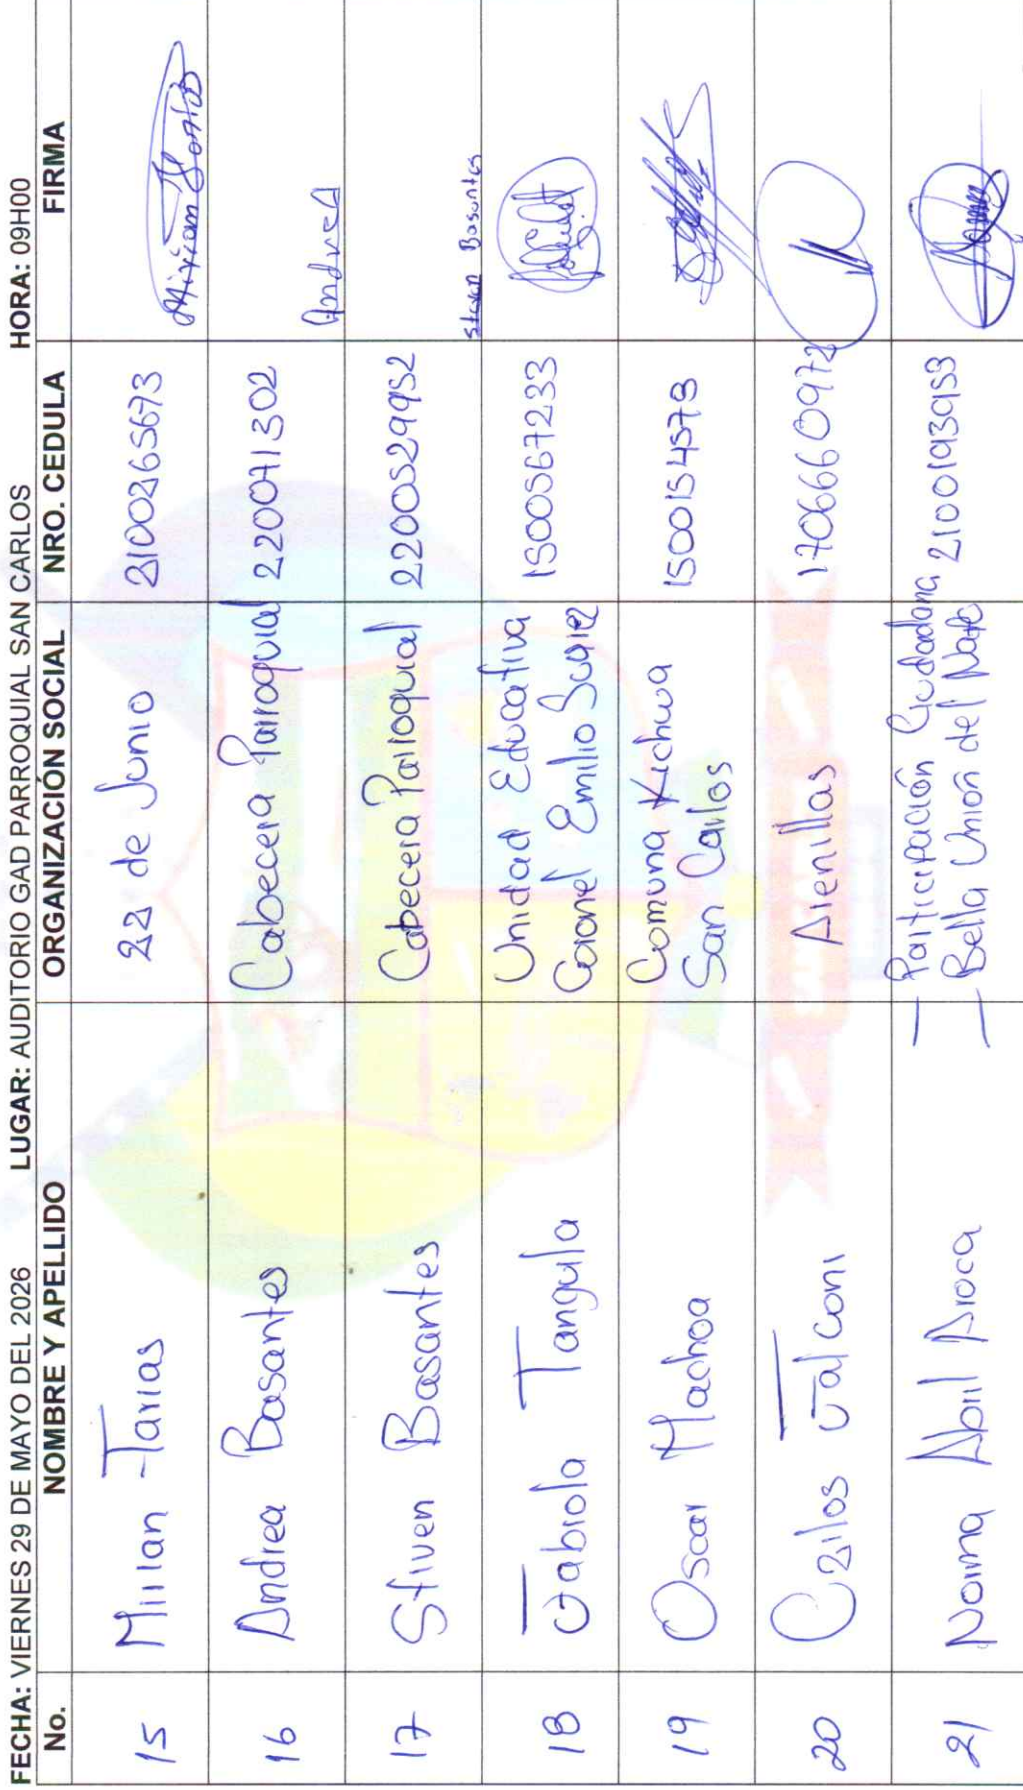 FECHA: VIERNES 29 DE MAYO DEL 2026 LUGAR: AUDITORIO GAD PARROQUIAL SAN CARLOS HORA: 09H00
No. NOMBRE Y APELLIDO ORGANIZACIÓN SOCIAL NRO. CEDULA FIRMA
15 Mirian Farias 22 de Junio 2100265673 Miriam Farias
16 Andrea Basantes Cabecera Parroquial 220071302 Andrea
17 Stiven Basantes Cabecera Parroquial 2200529952 Steven Basantes
18 Fabiola Tangula Unidad Educativa 1500567233
Coronel Emilio Suarez
19 Oscar Machoa Comuna Kichwa 1500154573
San Carlos
20 Carlos Falconi Arenillas 1706660972
21 Norma Abril Aroca – Participación Ciudadana 2100193953
– Bella Unión del Napo